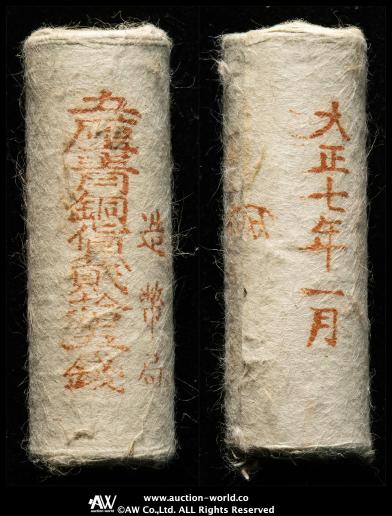 五厘青銅貨貳拾五錢
造幣局
大正七年一月
AW www.auction-world.co
©AW Co.,Ltd. ALL Rights Reserved